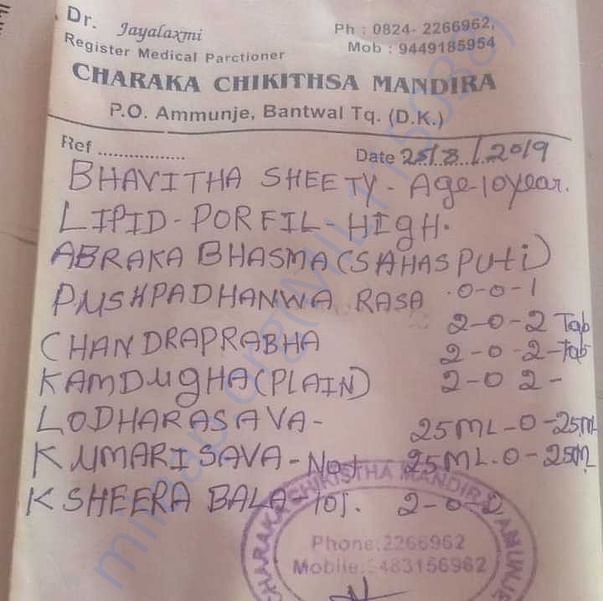 Dr. Jayalaxmi
Ph : 0824- 2266962,
Register Medical Parctioner
Mob : 9449185954
CHARAKA CHIKITHSA MANDIRA
P.O. Ammunje, Bantwal Tq. (D.K.)
Ref ................ Date 25/8/2019
BHAVITHA SHEETY - Age-10year.
LIPID-PORFIL-HIGH.
ABRAKA BHASMA(SAHASPUti)
0-0-1
PUSHPADHANWA RASA
2-0-2 Tab
CHANDRAPRABHA 2-0-2-Tab
KAMDUGHA(PLAIN) 2-0 2-
LODHARASAVA- 25ML-0-25ML
KUMARISAVA-No1 25ML.0-25ML
KSHEERA BALA-101. 2-0-2
CHARAKA CHIKISTHA MANDIRA AMUNJE
Phone:2266962
Mobile:9483156962